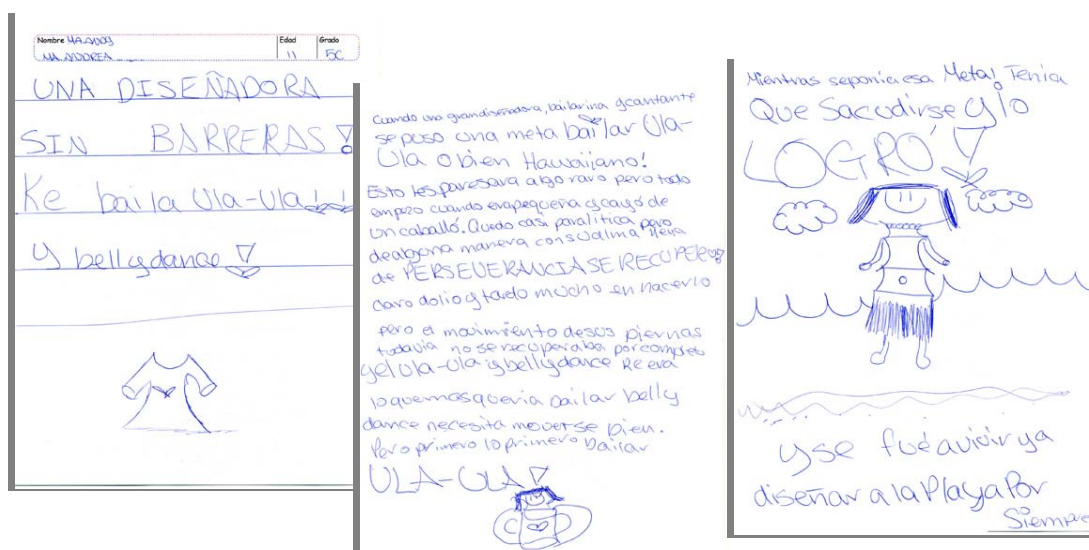 Nombre
Edad 11
Grado 5C
UNA DISEÑADORA
SIN BARRERAS!
Ke baila Ula-Ula!!
y bellydance!
Cuando una gran diseñadora, bailarina y cantante
se puso una meta bailar Ula-
Ula o bien Hawaiiano!
Esto les paresara algo raro pero todo
empezo cuando era pequeña y cayó de
un caballo. Quedo casi paralítica pero
de alguna manera con su alma llena
de PERSEVERANCIA SE RECUPERO!
claro dolio y tardo mucho en hacerlo
pero el movimiento de sus piernas
todavia no se recuperaba por completo
y el ula-ula y bellydance Ke era
lo que mas queria bailar belly
dance necesita moverse bien.
Pero primero lo primero bailar
ULA-ULA!
Mientras se ponia esa Meta! Tenia
Que Sacudirse y lo
LOGRÓ!
y se fué a vivir y a
diseñar a la Playa Por
Siempre